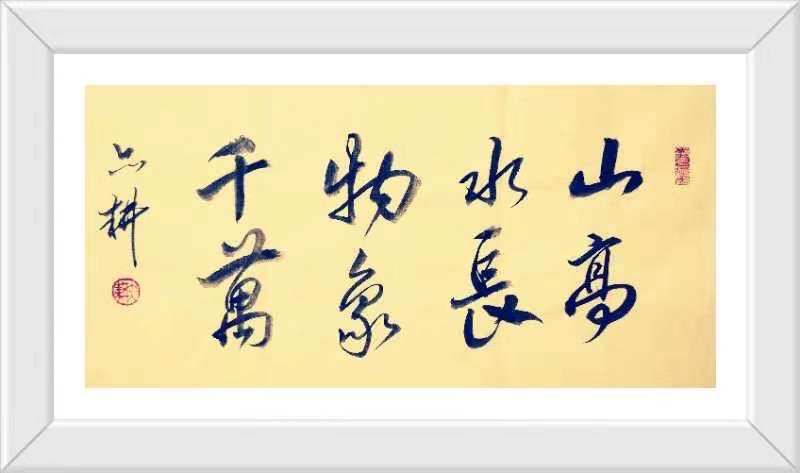 山高
水長
物象
千萬